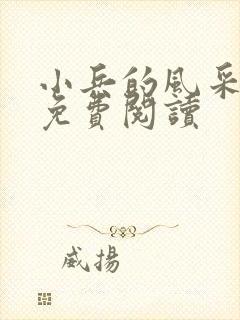 小兵的風采
免費閱讀
威揚